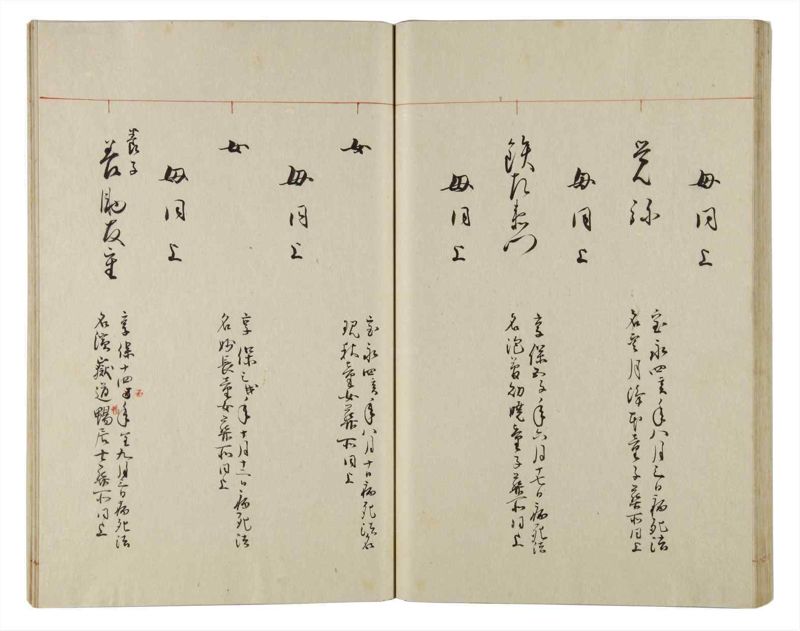 母同上
覚弥
宝永四亥年八月三日病死法
名 月 童子葬所同上
母同上
鉄左衛門
享保 子年六月十七日病死法
名泡 幻暁童子葬所同上
母同上
女
宝永四亥年八月十日病死法名
現秋童女葬所同上
母同上
女
享保三戌年十月十三日病死法
名妙長童女葬所同上
母同上
養子
善 友重
享保十四酉年 九月三日病死法
名 嶽道 居士葬所同上